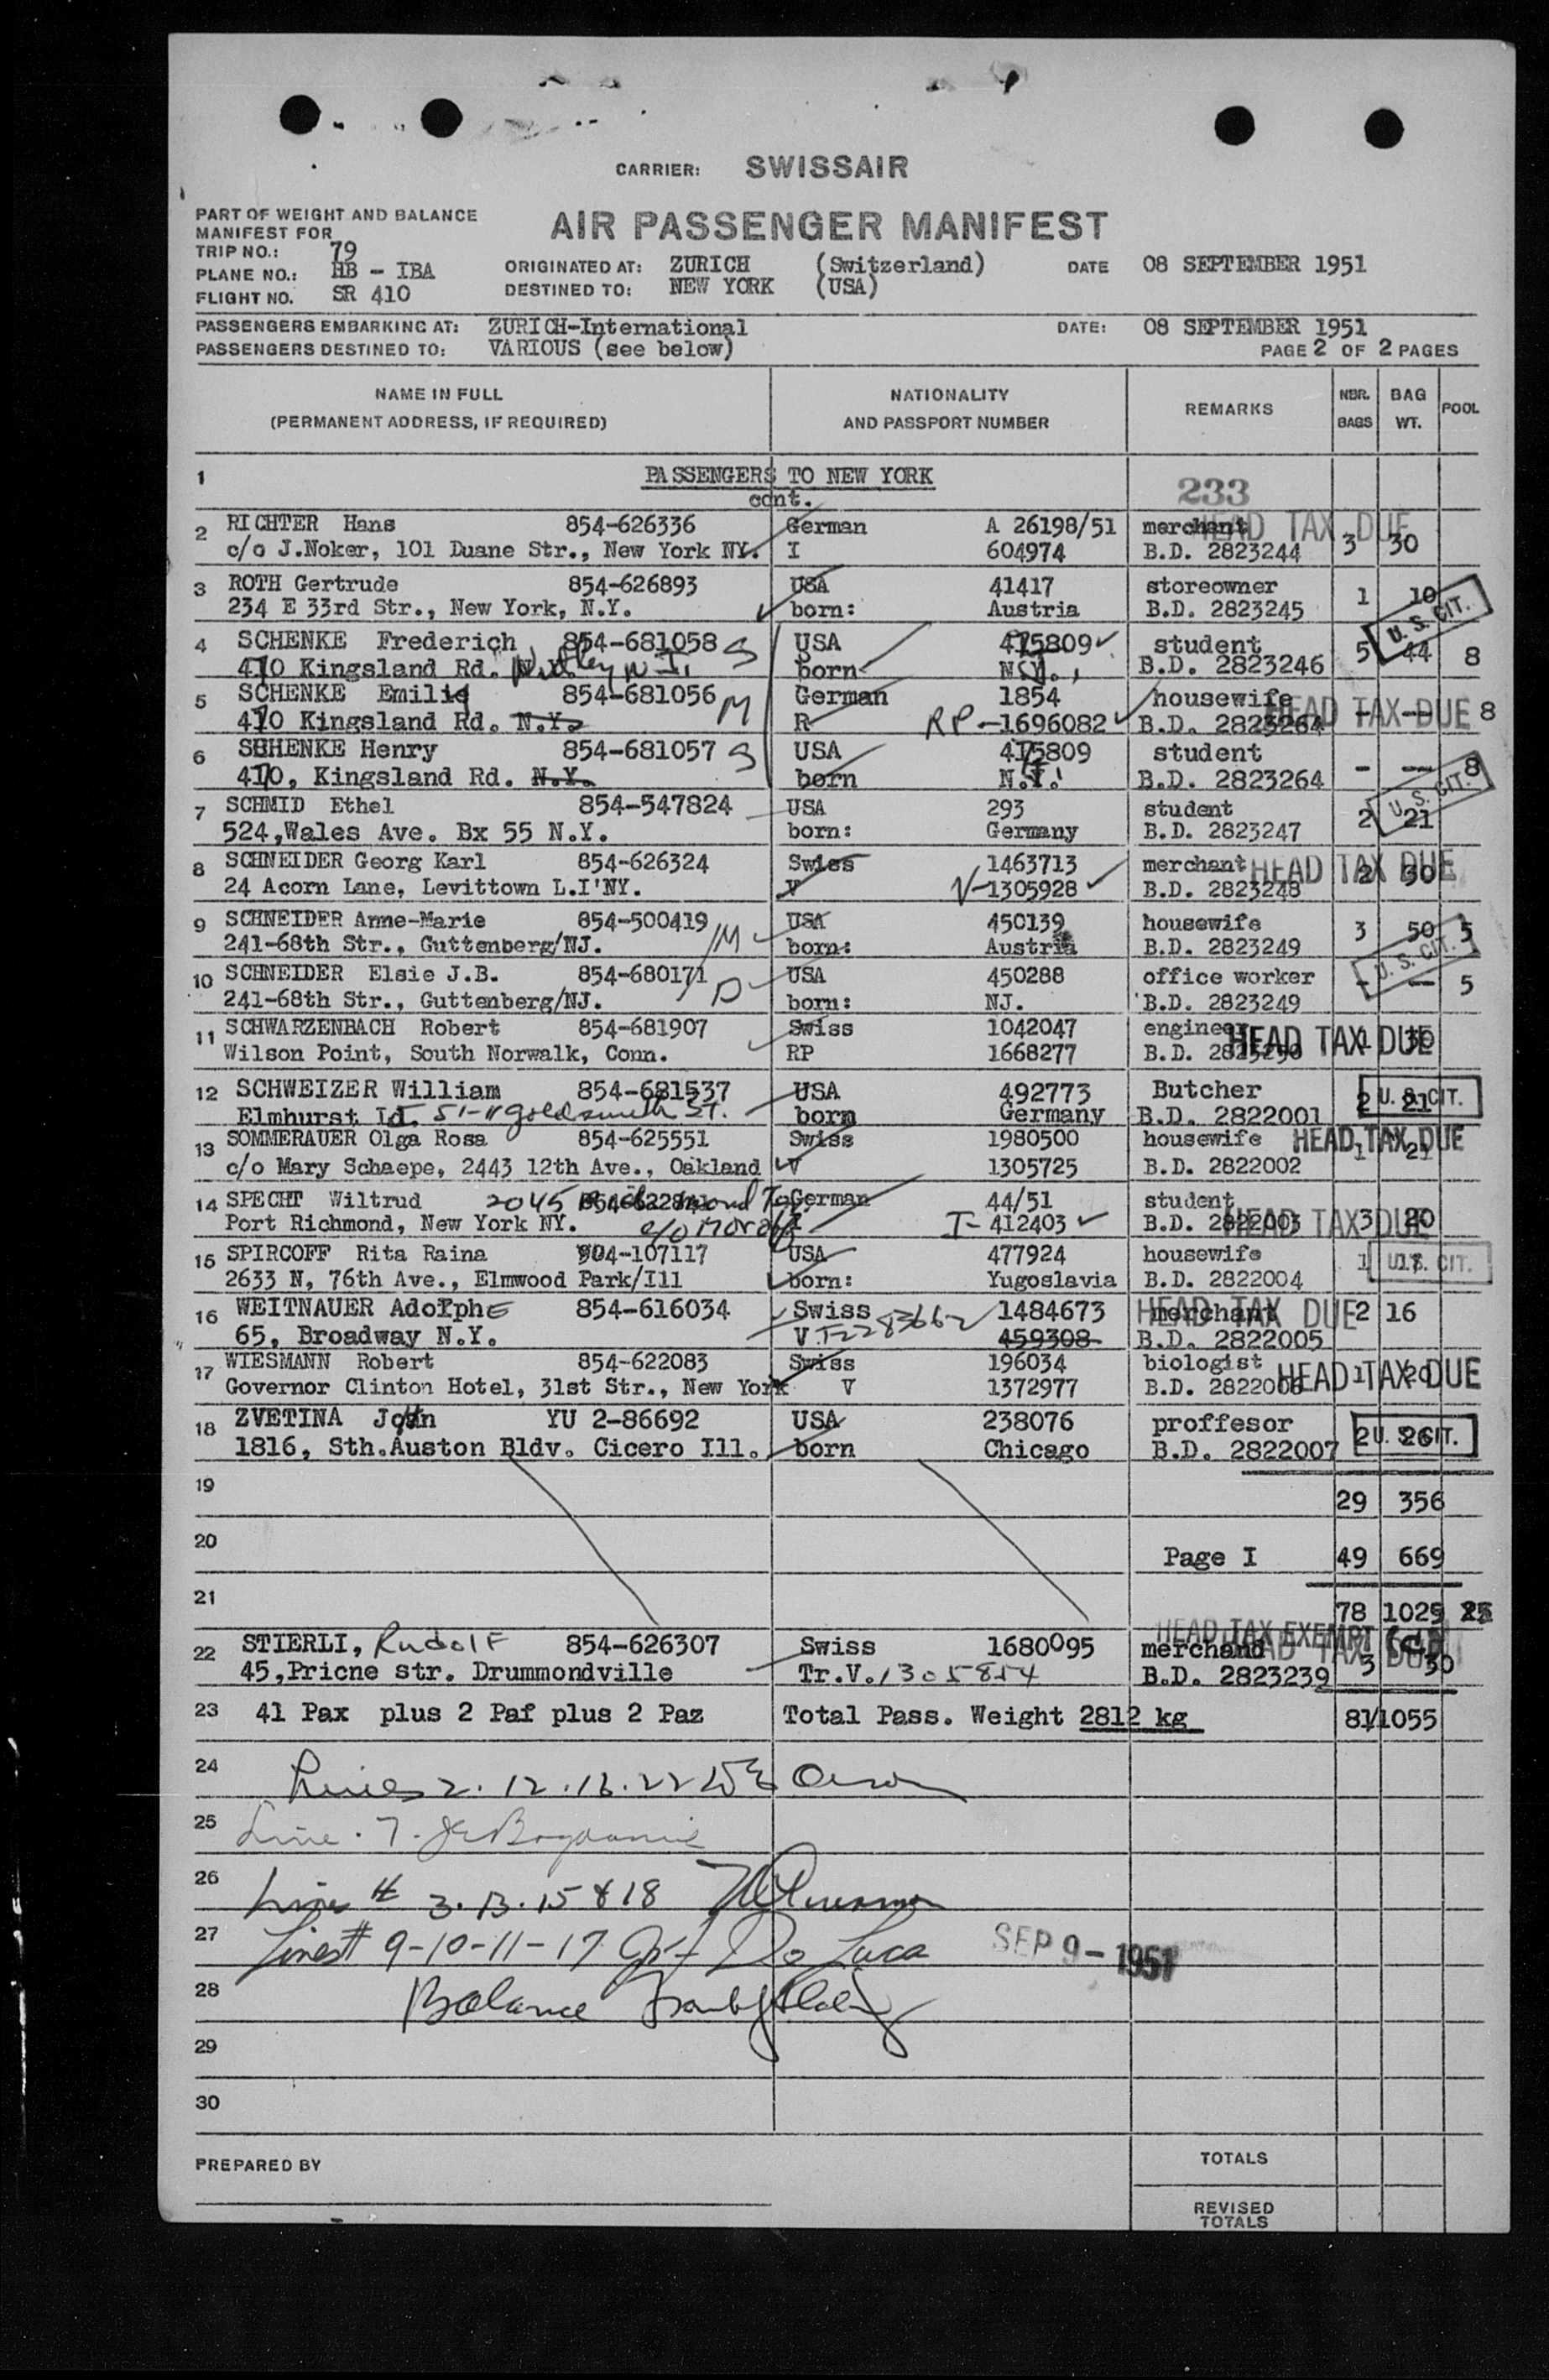 CARRIER: SWISSAIR
PART OF WEIGHT AND BALANCE
MANIFEST FOR
AIR PASSENGER MANIFEST
TRIP NO.: 79
PLANE NO.: HB - IBA ORIGINATED AT: ZURICH (Switzerland) DATE 08 SEPTEMBER 1951
FLIGHT NO. SR 410 DESTINED TO: NEW YORK (USA)
PASSENGERS EMBARKING AT: ZURICH-International DATE: 08 SEPTEMBER 1951
PASSENGERS DESTINED TO: VARIOUS (see below) PAGE 2 OF 2 PAGES
NAME IN FULL NATIONALITY REMARKS NBR. BAG POOL
(PERMANENT ADDRESS, IF REQUIRED) AND PASSPORT NUMBER BAGS WT.
1 PASSENGERS TO NEW YORK
cont. 233
2 RICHTER Hans 854-626336 German A 26198/51 merchant HEAD TAX DUE
c/o J.Noker, 101 Duane Str., New York NY. I 604974 B.D. 2823244 3 30
3 ROTH Gertrude 854-626893 USA 41417 storeowner 1 10
234 E 33rd Str., New York, N.Y. born: Austria B.D. 2823245 U.S. CIT.
4 SCHENKE Frederich 854-681058 S USA 475809 student 5 44 8
470 Kingsland Rd. Nutley N.J. born N.J. B.D. 2823246
5 SCHENKE Emilie 854-681056 M German 1854 housewife HEAD TAX DUE
470 Kingsland Rd. N.Y. R RP-1696082 B.D. 2823264 - -- 8
6 SCHENKE Henry 854-681057 S USA 475809 student
470, Kingsland Rd. N.Y. born N.J. B.D. 2823264 - -- 8
7 SCHMID Ethel 854-547824 USA 293 student U.S. CIT.
524,Wales Ave. Bx 55 N.Y. born: Germany B.D. 2823247 2 21
8 SCHNEIDER Georg Karl 854-626324 Swiss 1463713 merchant HEAD TAX DUE
24 Acorn Lane, Levittown L.I'NY. V V-1305928 B.D. 2823248 2 30
9 SCHNEIDER Anne-Marie 854-500419 M USA 450139 housewife 3 50 5
241-68th Str., Guttenberg/NJ. born: Austria B.D. 2823249 U.S. CIT.
10 SCHNEIDER Elsie J.B. 854-680171 D USA 450288 office worker - -- 5
241-68th Str., Guttenberg/NJ. born: NJ. B.D. 2823249
11 SCHWARZENBACH Robert 854-681907 Swiss 1042047 engineer HEAD TAX DUE
Wilson Point, South Norwalk, Conn. RP 1668277 B.D. 2823250 1
12 SCHWEIZER William 854-681537 USA 492773 Butcher U.S. CIT.
Elmhurst 51-11 Goldsmith St. born Germany B.D. 2822001 2 21
13 SOMMERAUER Olga Rosa 854-625551 Swiss 1980500 housewife HEAD TAX DUE
c/o Mary Schaepe, 2443 12th Ave., Oakland V 1305725 B.D. 2822002 1 21
14 SPECHT Wiltrud 2045 German 44/51 student HEAD TAX DUE
Port Richmond, New York NY. c/o I I-412403 B.D. 2822003 3 20
15 SPIRCOFF Rita Raina 904-107117 USA 477924 housewife 1 17 U.S. CIT.
2633 N, 76th Ave., Elmwood Park/Ill born: Yugoslavia B.D. 2822004
16 WEITNAUER Adolphe 854-616034 Swiss 1484673 merchant HEAD TAX DUE 2 16
65, Broadway N.Y. V. I-2283662 459308 B.D. 2822005
17 WIESMANN Robert 854-622083 Swiss 196034 biologist HEAD TAX DUE
Governor Clinton Hotel, 31st Str., New York V 1372977 B.D. 2822006 1 20
18 ZVETINA John YU 2-86692 USA 238076 proffesor U.S. CIT.
1816, Sth.Auston Bldv. Cicero Ill. born Chicago B.D. 2822007 2 26
19 29 356
20 Page I 49 669
21 78 1025
HEAD TAX EXEMPT
22 STIERLI, Rudolf 854-626307 Swiss 1680095 merchand
45,Pricne str. Drummondville Tr.V. 1305854 B.D. 2823239 3 30
23 41 Pax plus 2 Paf plus 2 Paz Total Pass. Weight 2812 kg 81 1055
24 Lines 2. 12. 16. 22
25 Line. 7.
26 Lines # 3. 13. 15 & 18
27 Lines # 9-10-11-17 De Luca SEP 9 - 1951
28 Balance
29
30
PREPARED BY TOTALS
REVISED
TOTALS